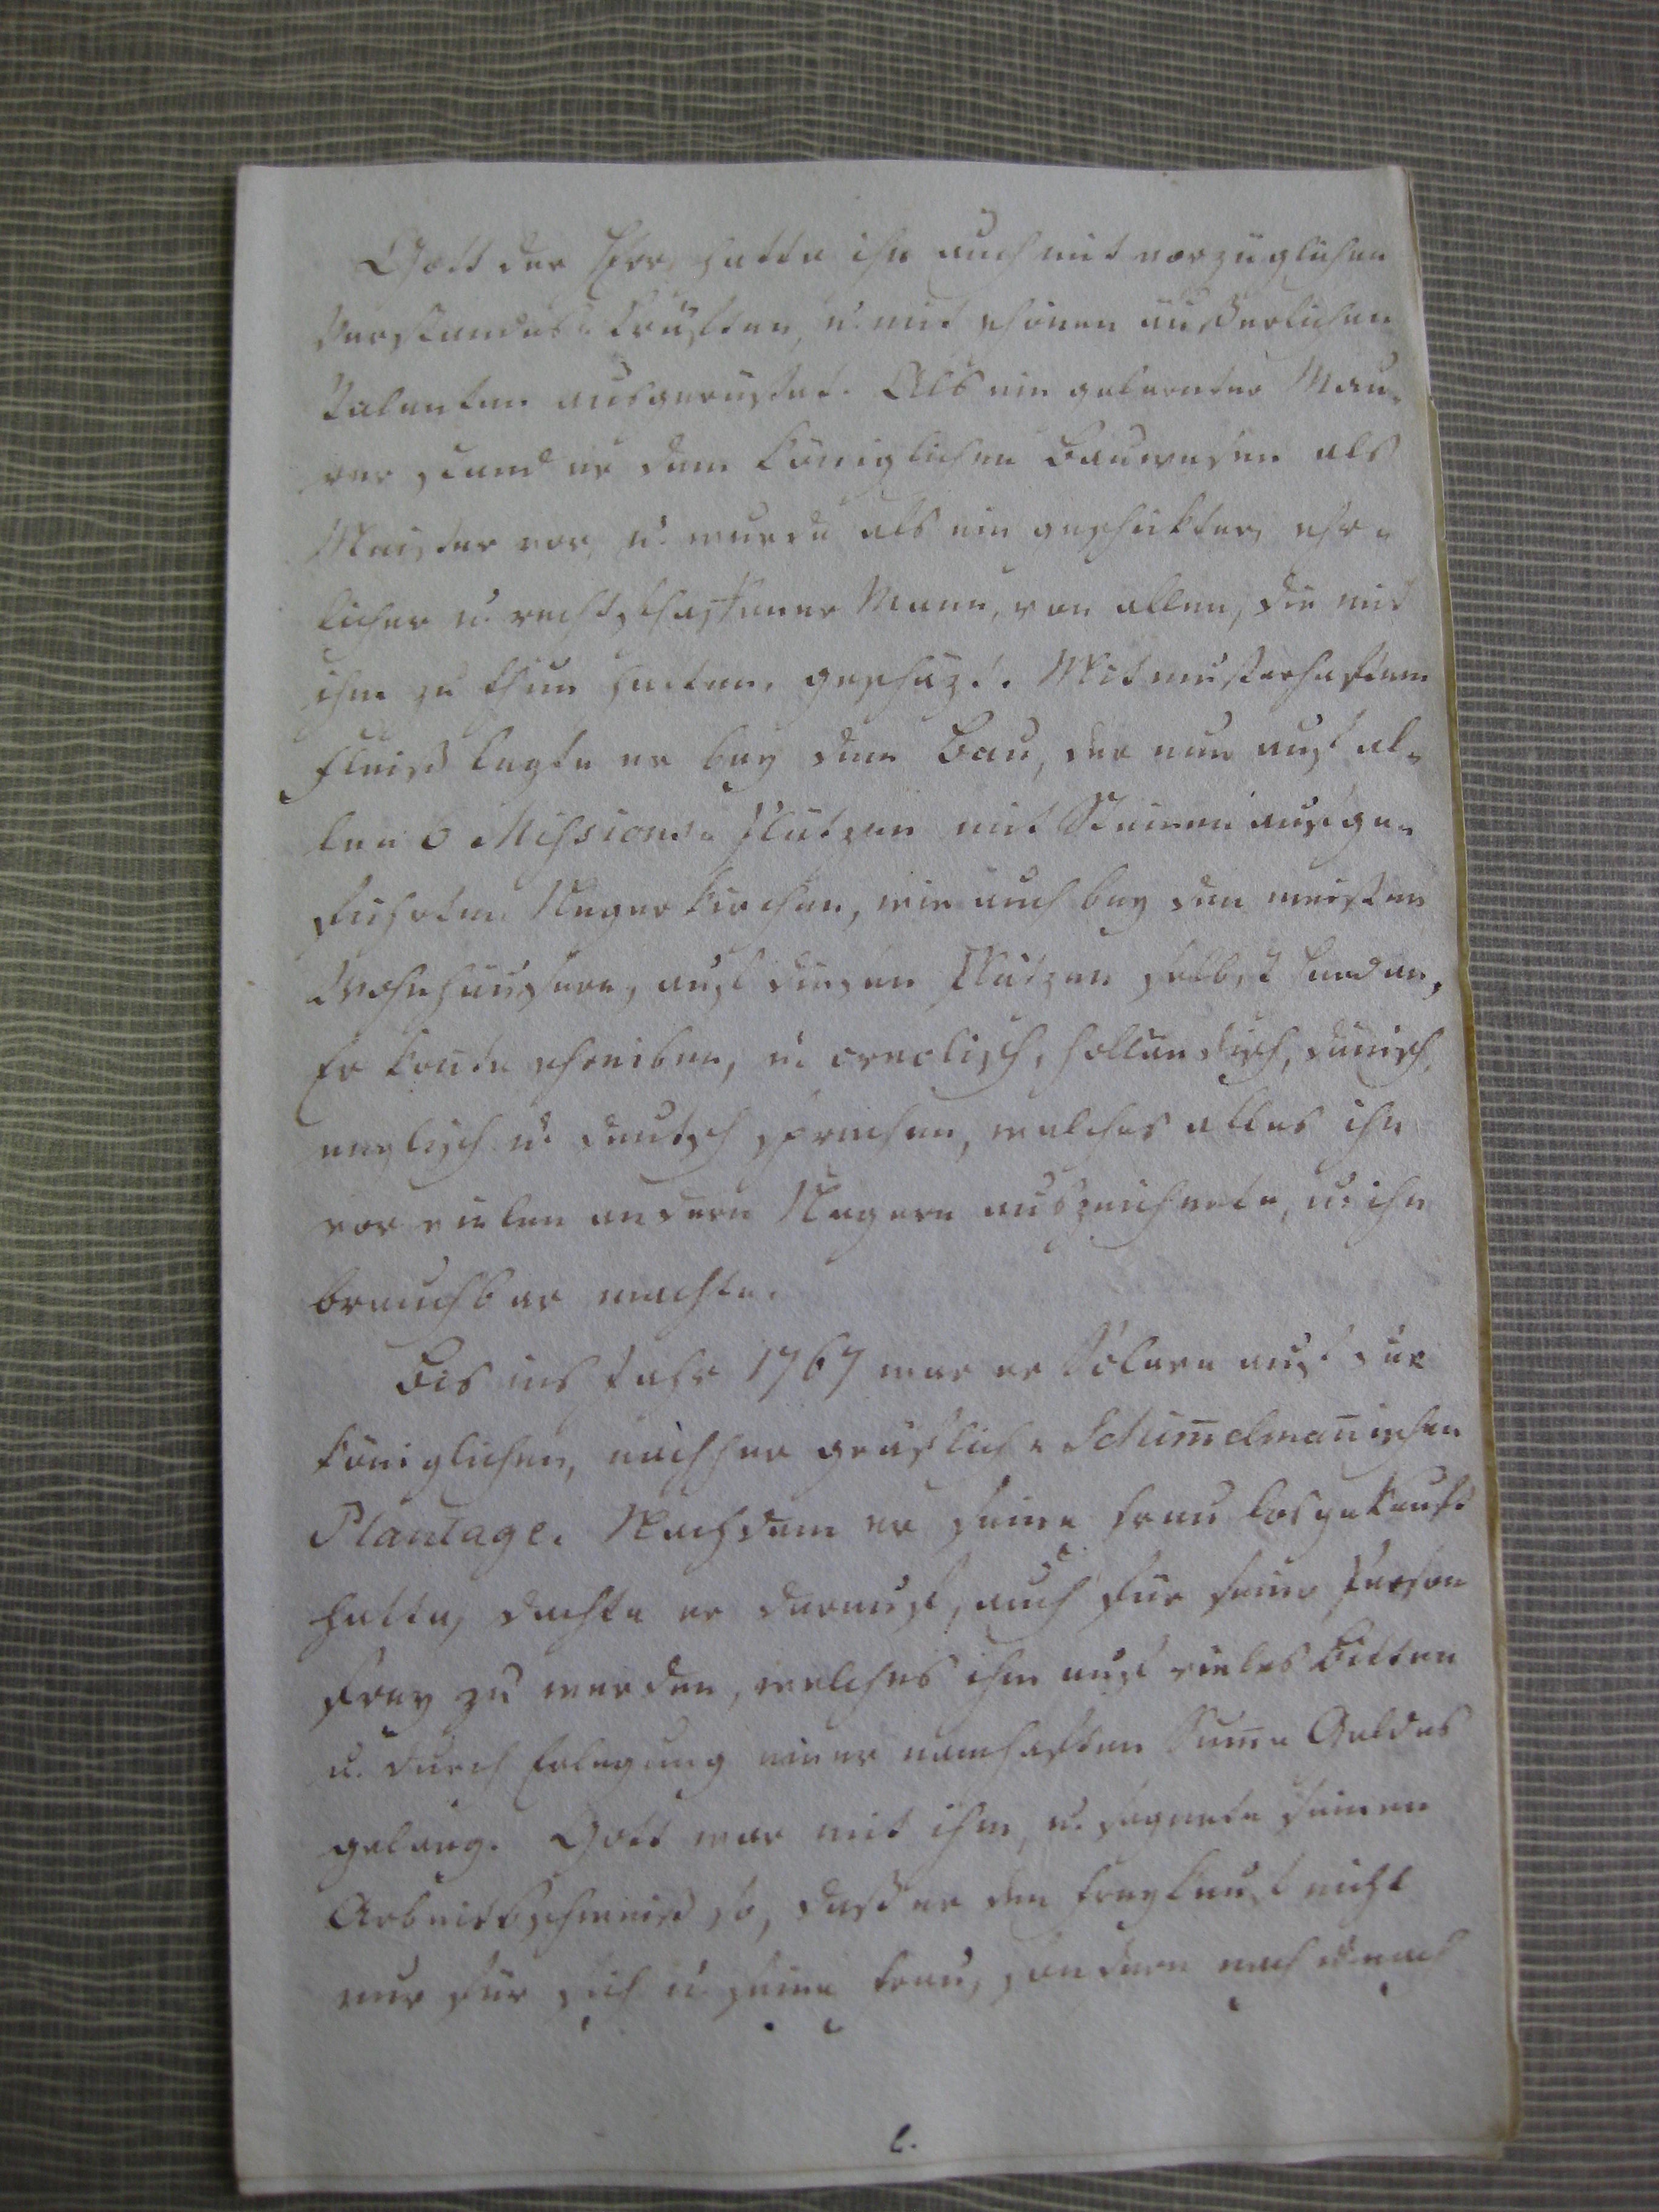 Gott der Herr hatte ihn auch mit vorzüglichen
Verstandes-Kräften, u. mit schönen äußerlichen
Talenten ausgerüstet. Als ein gelernter Mau-
rer stand er dem Königlichen Bauwesen als
Meister vor, u. wurde als ein geschickter, ehr-
licher u. rechtschaffener Mann, von allen, die mit
ihm zu thun hatten, geschäzt. Mit musterhaftem
Fleiß legte er bey dem Bau, der nun auf al-
len 6 Missions-Plätzen mit Steinen aufge-
führten Neger Kirchen, wie auch bey den meisten
Wohnhäusern, auf diesen Plätzen selbst Hand an,
Er konte schreiben, u. creolisch, holländisch, dänisch,
englisch u. deutsch sprechen, welches alles ihn
vor vielen andern Negern auszeichnete, u. ihn
brauchbar machte.
Bis ins Jahr 1767 war er Sclave auf der
Königlichen, nachher gräflich-Schum̅elman̅ischen
Plantage. Nachdem er seine Frau losgekauft
hatte, dachte er darauf, auch für seine Person
frey zu werden, welches ihm auf vieles Bitten
u. durch Erlegung einer namhaften Sum̅e Geldes
gelang. Gott war mit ihm, u. segnete seinen
Arbeitsschweiß so, daß er den Freykauf nicht
nur für sich u. seine Frau, sondern nach u. nach